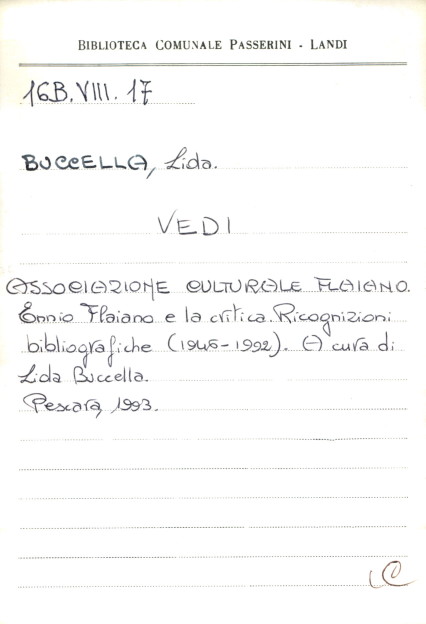 BIBLIOTECA COMUNALE PASSERINI - LANDI
16B.VIII.17
BUCCELLA, Lida.
VEDI
ASSOCIAZIONE CULTURALE FLAIANO.
Ennio Flaiano e la critica. Ricognizioni
bibliografiche (1946-1992). A cura di
Lida Buccella.
Pescara, 1993.